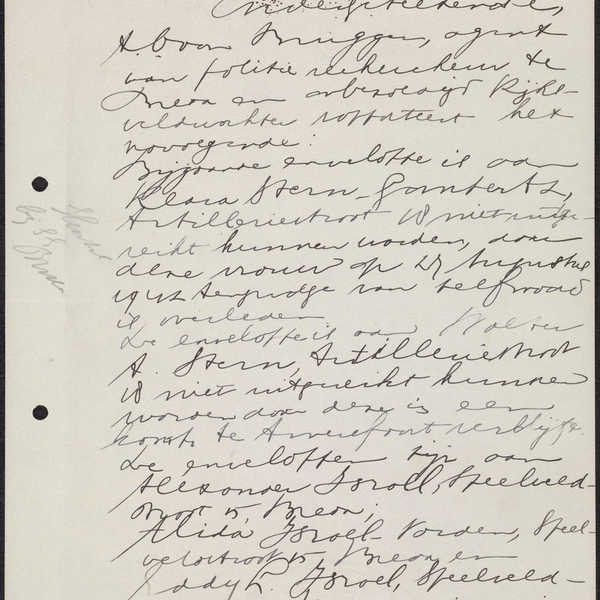 Ondergeteekende,
A. van Bruggen, agent
van politie rechercheur te
Breda en onbezoldigd Rijks-
veldwachter rapporteert het
navolgende:
Bijgaande enveloppe is aan
Klara Stern-Gombertz,
Artilleriestraat 18 niet uitge-
reikt kunnen worden, daar
deze vrouw op 27 Augustus
1942 tengevolge van zelfmoord
is overleden
De enveloppe is aan Walter
A. Stern, Artilleriestraat
18 niet uitgereikt kunnen
worden daar deze in een
kamp te Amersfoort verblijft.
De enveloppen zijn aan
Alexander Israel, Speelveld-
straat 15 Breda,
Alida Israel-Vorden, Speel-
veldstraat 15 Breda en
Eddy Israel, Speelveld-